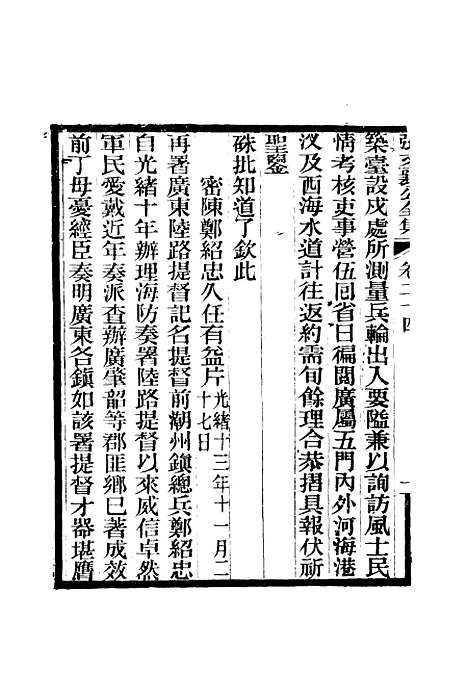 張文襄公全集 卷二十四
築臺設戍處所測量兵輪出入要隘兼以詢訪風土民
情考核吏事營伍囘省日徧閱廣屬五門內外河海港
汊及西海水道計往返約需旬餘理合恭摺具報伏祈
聖鑒
硃批知道了欽此
密陳鄭紹忠久任有益片 光緒十三年十一月二十七日
再署廣東陸路提督記名提督前潮州鎮總兵鄭紹忠
自光緒十年辦理海防奏署陸路提督以來威信卓然
軍民愛戴近年奏派查辦廣肇韶等郡匪鄉巳著成效
前丁母憂經臣奏明廣東各鎮如該署提督才器堪膺